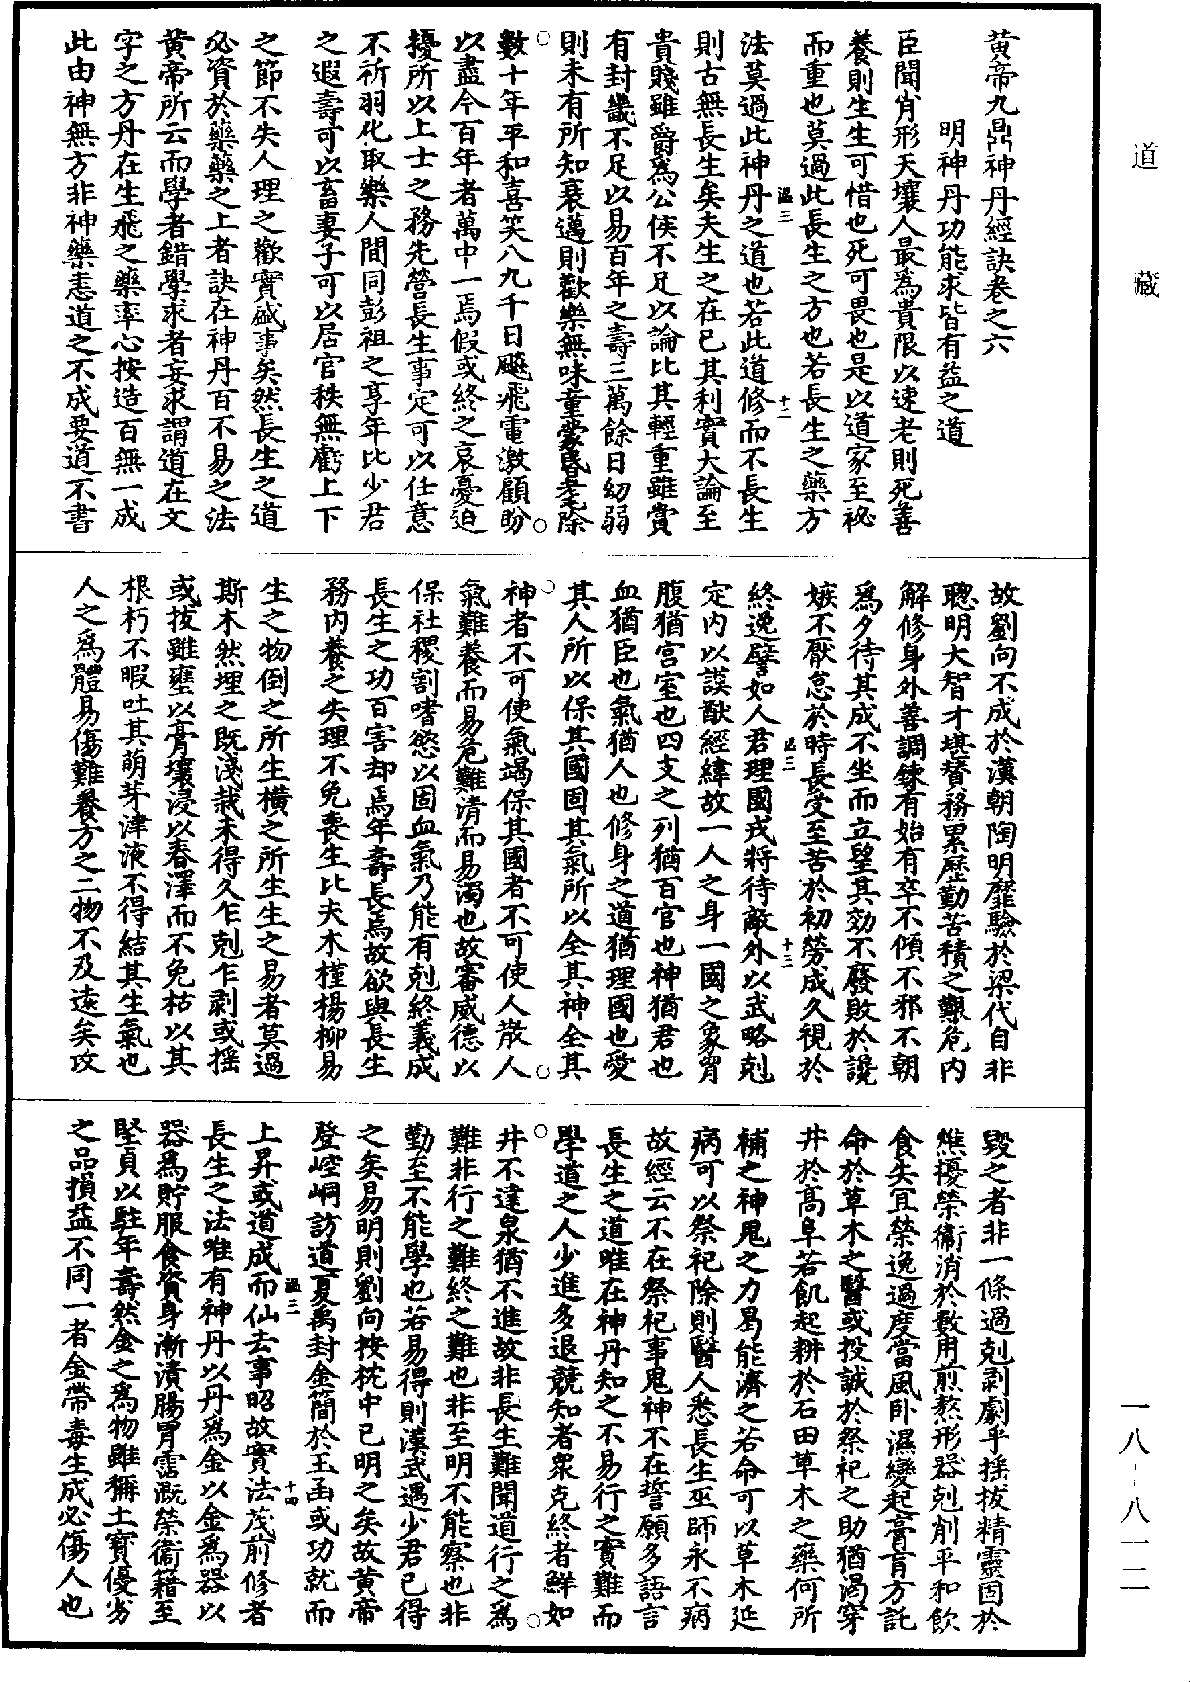 道藏
黃帝九鼎神丹經訣卷之六
明神丹功能求皆有益之道
臣聞肖形天壤人最為貴限以速老則死善
養則生生可惜也死可畏也是以道家至祕
而重也莫過此長生之方也若長生之藥方
法莫過此神丹之道也若此道修而不長生
則古無長生矣夫生之在已其利實大論至
貴賤雖爵為公侯不足以論比其輕重雖賞
有封畿不足以易百年之壽三萬餘日幼弱
則未有所知衰邁則歡樂無味童蒙昬耄除
數十年平和喜笑八九千日飈飛電激顧盼
以盡今百年者萬中一焉假或終之哀憂迫
擾所以上士之務先營長生事定可以任意
不祈羽化取樂人間同彭祖之享年比少君
之遐壽可以畜妻子可以居官秩無虧上下
之節不失人理之歡實盛事矣然長生之道
必資於藥藥之上者訣在神丹百不易之法
黃帝所云而學者錯學求者妄求謂道在文
字之方丹在生飛之藥率心按造百無一成
此由神無方非神藥恚道之不成要道不書
故劉向不成於漢朝陶明靡驗於梁代自非
聰明大智才堪贊務累歷勤苦積之艱危內
解修身外善調鍊有始有卒不傾不邪不朝
為夕待其成不坐而立望其効不廢敗於讒
嫉不厭怠於時長受至苦於初勞成久視於
終逸譬如人君理國戎將待敵外以武略剋
定內以謨猷經緯故一人之身一國之象胷
腹猶宮室也四支之列猶百官也神猶君也
血猶臣也氣猶人也修身之道猶理國也愛
其人所以保其國固其氣所以全其神全其
神者不可使氣竭保其國者不可使人散人
氣難養而易危難清而易濁也故審威德以
保社稷割嗜慾以固血氣乃能有剋終義成
長生之功百害却焉年壽長焉故欲與長生
務內養之失理不免喪生比夫木槿楊柳易
生之物倒之所生橫之所生生之易者莫過
斯木然埋之既淺栽未得久乍剋乍剥或搖
或拔雖壅以膏壤浸以春澤而不免枯以其
根朽不暇吐其萌芽津液不得結其生氣也
人之為體易傷難養方之二物不及遠矣攻
毀之者非一條過剋剥劇乎搖拔精靈困於
煩擾榮衞消於數用煎熬形器剋削平和飲
食失宜榮逸過度當風卧濕變起膏肓方託
命於草木之醫或投誠於祭祀之助猶渴穿
井於高阜若飢起耕於石田草木之藥何所
補之神鬼之力曷能濟之若命可以草木延
病可以祭祀除則醫人悉長生巫師永不病
故經云不在祭祀事鬼神不在誓願多語言
長生之道唯在神丹知之不易行之實難而
學道之人少進多退競知者衆克終者鮮如
井不達泉猶不進故非長生難聞道行之為
難非行之難終之難也非至明不能察也非
勤至不能學也若易得則漢武遇少君已得
之矣易明則劉向按枕中已明之矣故黃帝
登崆峒訪道夏禹封金簡於玉函或功就而
上昇或道成而仙去事昭故實法茂前修者
長生之法唯有神丹以丹為金以金為器以
器為貯服食資身漸漬腸胃霑溉榮衞籍至
堅貞以駐年壽然金之為物雖稱土寶優劣
之品損益不同一者金帶毒生成必傷人也
溫三
十二
溫三
十三
溫三
十四
一八-八一二